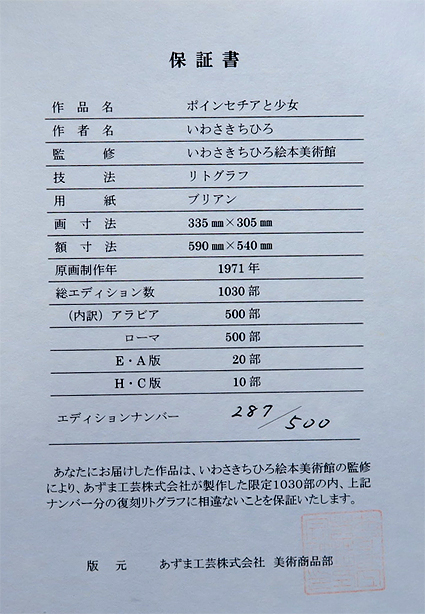 保証書
作品名 ポインセチアと少女
作者名 いわさきちひろ
監修 いわさきちひろ絵本美術館
技法 リトグラフ
用紙 ブリアン
画寸法 335㎜×305㎜
額寸法 590㎜×540㎜
原画制作年 1971年
総エディション数 1030部
（内訳）アラビア 500部
ローマ 500部
E・A版 20部
H・C版 10部
エディションナンバー 287/500
あなたにお届けした作品は、いわさきちひろ絵本美術館の監修
により、あずま工芸株式会社が製作した限定1030部の内、上記
ナンバー分の復刻リトグラフに相違ないことを保証いたします。
版元 あずま工芸株式会社 美術商品部